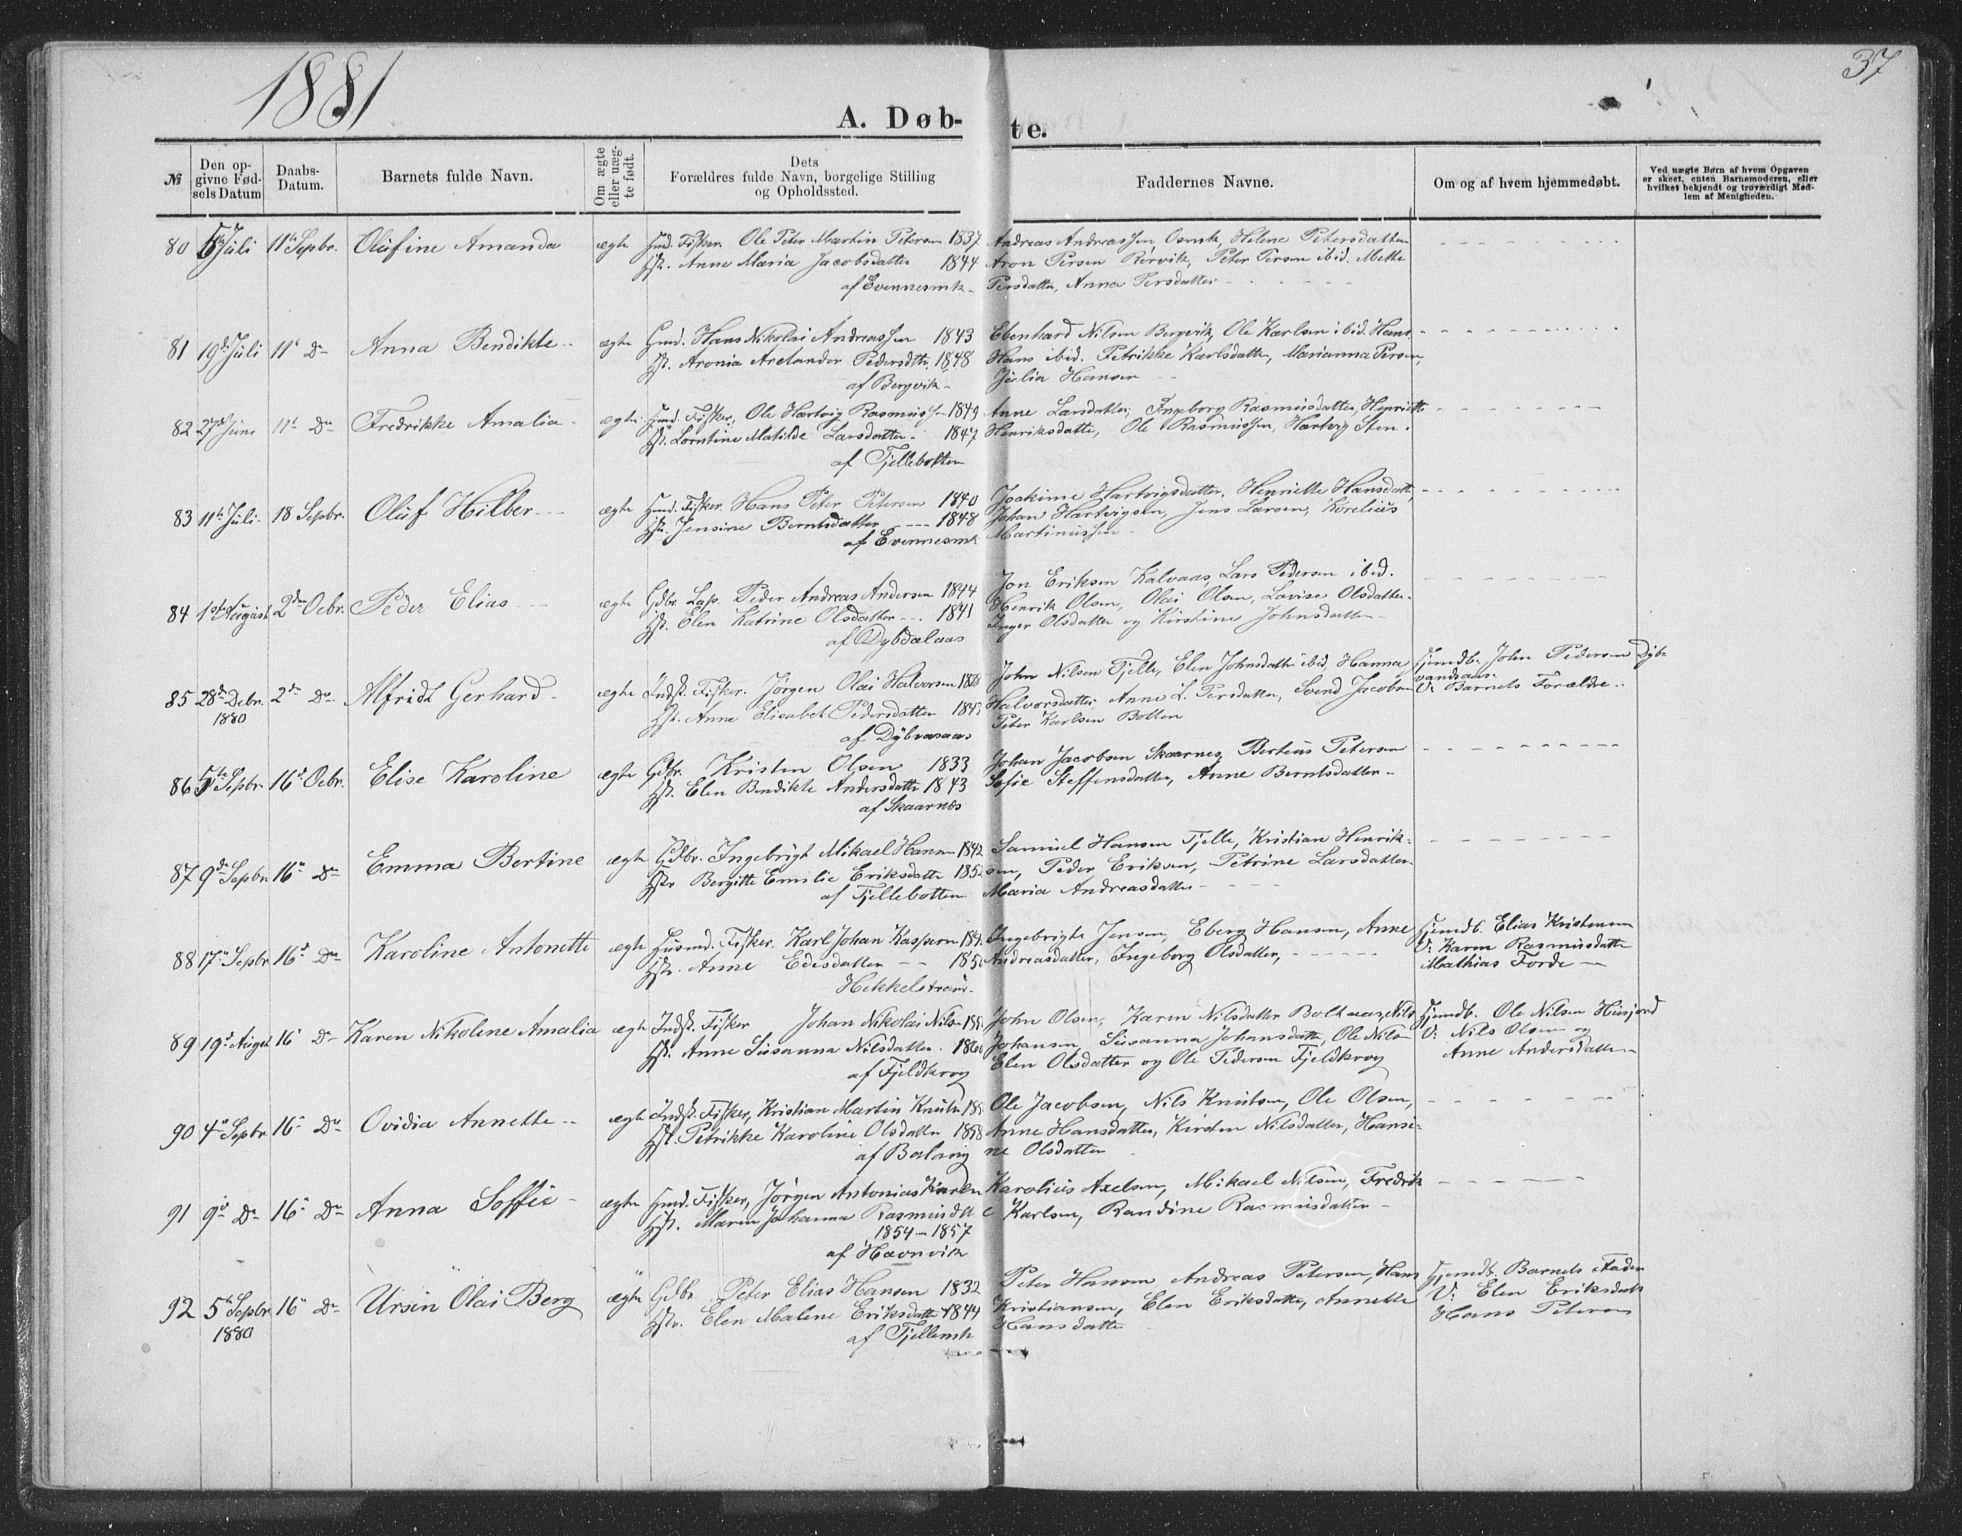 1881
37
A. Døb-te.
№
Den opgivne Fødsels Datum
Daabs-Datum.
Barnets fulde Navn.
Om ægte eller uægte født.
Dets Forældres fulde Navn, borgelige Stilling og Opholdssted.
Faddernes Navne.
Om og af hvem hjemmedøbt.
Ved uægte Børn af hvem Opgaven er skeet, enten Barnemoderen, eller hvilket bekjendt og troværdigt Medlem af Menigheden.
80 5 Juli 11 Sepbr. Olufine Amanda ægte Hmd. Fisker Ole Peter Martin Petersen 1837 Andreas Andreassen, Helene Petersdatter
Hst. Anne Maria Jacobsdatter 1844 Aron Persen Rervik, Peter Persen ibid. Mette
af Evenesmk. Persdatter, Anna Persdatter
81 19de Juli 11 Do Anna Bendikte ægte Gmd. Hans Nikolai Andreassen 1843 Ebenhard Nilsen Bergvik, Ole Karlsen ibid. Hans
Hst. Aronia Pedersdtr. 1848 Hans ibid. Petrikke Karlsdatter, Marianna Persen,
af Bergvik Julia Hansen
82 27de Juni 11 Do Fredrikke Amalia ægte Hmd. Fisker. Ole Hartvig Rasmussen 1849 Anne Larsdatter, Ingeborg Rasmusdatter, Henriette
Hst. Lorntine Matilde Larsdatter 1847 Henriksdatter, Ole Rasmussen, Hartvig Sten.
af Fjellebotten
83 11te Juli 18 Sepbr. Oluf Hilber ægte Hmd. Fisker. Hans Peter Petersen 1840 Joakime Hartvigsdatter, Henriette Hansdatter,
Hst. Jensine Berntsdatter 1848 Johan Hartvigsen, Jens Larsen, Korelius
af Evenesmk Martinussen
84 1ste August 2den Ocbr. Peder Elias ægte Gdbr. Lap. Peder Andreas Andersen 1844 Jon Eriksen Kalvaas, Lars Pedersen ibid.
Hst. Elen Katrine Olsdatter 1841 Henrik Olsen, Olai Olsen, Lovise Olsdatter
af Dybdalaas Inger Olsdatter og Kirstine Johnsdatter
85 28de Debr. 1880 2den Do Alfridt Gerhard ægte Indst. Fisker. Jørgen Olai Halvorsen John Nilsen Fjelle, Elen Johnsdatter ibid, Hanna Hjemdb. John Pedersen Dyb-
vandsaas.
Hst. Anne Elisabet Pedersdatter Halvorsdatter, Anne L. Persdatter, Svend Jacobsen V: Barnets Forældre.
af Dybvasaas Peter Karlsen Botten
86 5te Sepbr. 16de Ocbr. Elise Karoline ægte Gdbr. Kristen Olsen 1833 Johan Jacobsen Skaarnes, Berteus Petersen
Hst. Elen Bendikte Andersdatter 1843 Sofie Steffensdatter, Anne Berntsdatter
af Skaarnes
87 9de Sepbr. 16 Do Emma Bertine ægte Gdbr. Ingebrigt Mikael Hansen 1842 Samuel Hansen Fjelle, Kristian Henrik-
Hst. Bergitte Emilie Eriksdatter sen, Peder Eriksen, Petrine Larsdatter
af Fjellebotten Maria Andreasdatter
88 17 Sepbr. 16 Do Karoline Antonette ægte Husmd. Fisker. Karl Johan Kaspersen Ingebrigt Jensen, Eberg Hansen, Anne Hjemdb. Elias Kristensen
Hst. Anne Edisdatter Andreasdatter, Ingeborg Olsdatter, V: Karen Rasmusdatter
Hekkelstrand. Mathias Forde
89 19de August 16 Do Karen Nikolene Amalia ægte Indst. Fisker Johan Nikolai Nilsen John Olsen, Karen Nilsdatter Boltaas, Nils Hjemdb. Ole Nilsen Husjord
Hst. Anne Susanna Nilsdatter. Johansen, Susanna Johansdatter, Ole Nilsen V: Nils Olsen og
af Fjeldkrog Elen Olsdatter og Ole Pedersen Fjeldkrog Anne Andersdatter
90 4de Sepbr. 16 Do Ovidia Annette ægte Indst. Fisker, Kristian Martin Knutsen Ole Jacobsen, Nils Knutsen, Ole Olsen,
Hst. Petrikke Karoline Olsdatter 1858 Anne Hansdatter, Kirsten Nilsdatter, Hansi-
af Balavig ne Olsdatter
91 9de Do 16 Do Anna Soffie ægte Hmd. Fisker, Jørgen Antonias Karolius Axelsen, Mikael Nilsen, Fredrik
Hst. Maren Johanna Rasmusdatter Karlsen, Randine Rasmusdatter
1854 - 1857
af Havnvik
92 5te Sepbr. 1880 16 Do Ursin Olai Berg ægte Gdbr. Peter Elias Hansen 1832 Peter Hansen, Andreas Petersen, Hans Hjemdb. Barnets Fader
Hst. Elen Malene Eriksdatter 1844 Kristiansen, Elen Eriksdatter, Annette V: Elen Eriksdatter
af Fjellemk Hansdatter Hans Petersen